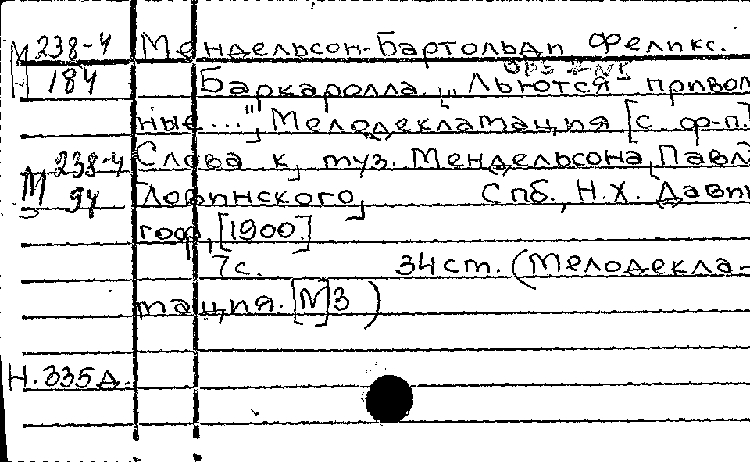 М 238-4 Мендельсон-Бартольди Феликс.
184 Баркаролла. „Льются привол
ные...", Мелодекламация [с ф-п.]
М 238-4 Слова к муз. Мендельсона Павл
94 Спб., Н.Х. Давин
гоф, [1900.]
7с. 34см. (Мелодекла-
мация. [№]3)
Н.335д.